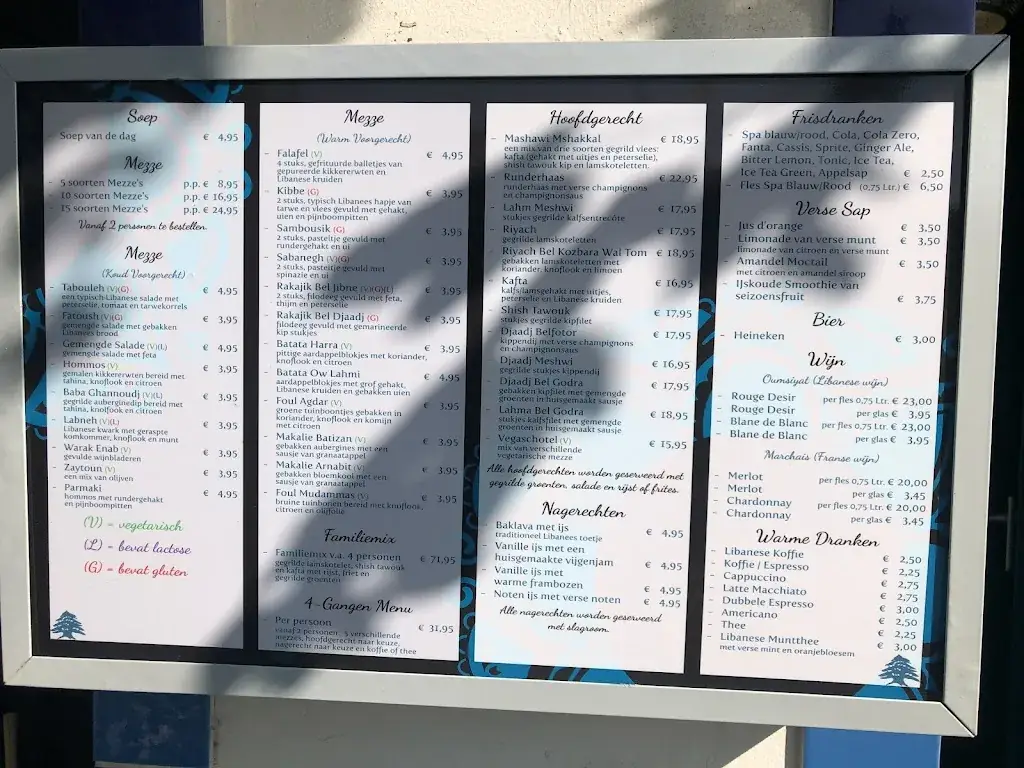 Soep
Soep van de dag € 4,95
Mezze
- 5 soorten Mezze's p.p. € 8,95
- 10 soorten Mezze's p.p. € 16,95
- 15 soorten Mezze's p.p. € 24,95
Vanaf 2 personen te bestellen.
Mezze
(Koud Voorgerecht)
- Tabouleh (V)(G) € 4,95
een typisch Libanese salade met
peterselie, tomaat en tarwekorrels
- Fatoush (V)(G) € 3,95
gemengde salade met gebakken
Libanees brood
- Gemengde Salade (V)(L) € 4,95
gemengde salade met feta
- Hommos (V) € 3,95
gemalen kikkererwten bereid met
tahina, knoflook en citroen
- Baba Ghannoudj (V)(L) € 3,95
gegrilde auberginedip bereid met
tahina, knolfook en citroen
- Labneh (V)(L) € 3,95
Libanese kwark met geraspte
komkommer, knoflook en munt
- Warak Enab (V) € 3,95
gevulde wijnbladeren
- Zaytoun (V) € 3,95
een mix van olijven
- Parmaki € 4,95
hommos met rundergehakt
en pijnboompitten
(V) = vegetarisch
(L) = bevat lactose
(G) = bevat gluten
Mezze
(Warm Voorgerecht)
- Falafel (V) € 4,95
4 stuks, gefrituurde balletjes van
gepureerde kikkererwten en
Libanese kruiden
- Kibbe (G) € 3,95
2 stuks, typisch Libanees hapje van
tarwe en vlees gevuld met gehakt,
uien en pijnboompitten
- Sambousik (G) € 3,95
2 stuks, pasteitje gevuld met
rundergehakt en ui
- Sabanegh (V)(G) € 3,95
2 stuks, pasteitje gevuld met
spinazie en ui
- Rakajik Bel Jibne (V)(G)(L) € 3,95
2 stuks, filodeeg gevuld met feta,
thijm en peterselie
- Rakajik Bel Djaadj (G) € 3,95
filodeeg gevuld met gemarineerde
kip stukjes
- Batata Harra (V) € 3,95
pittige aardappelblokjes met koriander,
knoflook en citroen
- Batata Ow Lahmi € 4,95
aardappelblokjes met grof gehakt,
Libanese kruiden en gebakken uien
- Foul Agdar (V) € 3,95
groene tuinboontjes gebakken in
koriander, knoflook en komijn
met citroen
- Makalie Batizan (V) € 3,95
gebakken aubergines met een
sausje van granaatappel
- Makalie Arnabit (V) € 3,95
gebakken bloemkool met een
sausje van granaatappel
- Foul Mudammas (V) € 3,95
bruine tuinbonen bereid met knoflook,
citroen en olijfolie
Familiemix
- Familiemix v.a. 4 personen € 71,95
gegrilde lamskotelet, shish tawouk
en kafta met rijst, friet en
gegrilde groenten
4-Gangen Menu
- Per persoon € 31,95
vanaf 2 personen 5 verschillende
mezzes, hoofdgerecht naar keuze,
nagerecht naar keuze en koffie of thee
Hoofdgerecht
- Mashawi Mshakkal € 18,95
een mix van drie soorten gegrild vlees:
kafta (gehakt met uitjes en peterselie),
shish tawouk kip en lamskoteletten.
- Runderhaas € 22,95
runderhaas met verse champignons
en champignonsaus
- Lahm Meshwi € 17,95
stukjes gegrilde kalfsentrecôte
- Riyach € 17,95
gegrilde lamskoteletten
- Riyach Bel Kozbara Wal Tom € 18,95
gebakken lamskoteletten met
koriander, knoflook en limoen
- Kafta € 16,95
kalfs/lamsgehakt met uitjes,
peterselie en Libanese kruiden
- Shish Tawouk € 17,95
stukjes gegrilde kipfilet
- Djaadj Belfotor € 17,95
kippendij met verse champignons
en champignonsaus
- Djaadj Meshwi € 16,95
gegrilde stukjes kippendij
- Djaadj Bel Godra € 17,95
gebakken kipfilet met gemengde
groenten in huisgemaakt sausje
- Lahma Bel Godra € 18,95
stukjes kalfsfilet met gemengde
groenten in huisgemaakt sausje
- Vegaschotel (V) € 15,95
mix van verschillende
vegetarische mezze
Alle hoofdgerechten worden geserveerd met
gegrilde groenten, salade en rijst of frites.
Nagerechten
- Baklava met ijs € 4,95
traditioneel Libanees toetje
- Vanille ijs met een
huisgemaakte vijgenjam € 4,95
- Vanille ijs met
warme frambozen € 4,95
- Noten ijs met verse noten € 4,95
Alle nagerechten worden geserveerd
met slagroom.
Frisdranken
- Spa blauw/rood, Cola, Cola Zero,
Fanta, Cassis, Sprite, Ginger Ale,
Bitter Lemon, Tonic, Ice Tea,
Ice Tea Green, Appelsap € 2,50
- Fles Spa Blauw/Rood (0,75 Ltr.) € 6,50
Verse Sap
- Jus d'orange € 3,50
- Limonade van verse munt € 3,50
limonade van citroen en verse munt
- Amandel Moctail € 3,50
met citroen en amandel siroop
- IJskoude Smoothie van
seizoensfruit € 3,75
Bier
- Heineken € 3,00
Wijn
Oumsiyat (Libanese wijn)
- Rouge Desir per fles 0,75 Ltr. € 23,00
- Rouge Desir per glas € 3,95
- Blane de Blanc per fles 0,75 Ltr. € 23,00
- Blane de Blanc per glas € 3,95
Marchais (Franse wijn)
- Merlot per fles 0,75 Ltr. € 20,00
- Merlot per glas € 3,45
- Chardonnay per fles 0,75 Ltr. € 20,00
- Chardonnay per glas € 3,45
Warme Dranken
- Libanese Koffie € 2,50
- Koffie / Espresso € 2,25
- Cappuccino € 2,75
- Latte Macchiato € 2,75
- Dubbele Espresso € 3,00
- Americano € 2,50
- Thee € 2,25
- Libanese Muntthee € 3,00
met verse mint en oranjebloesem